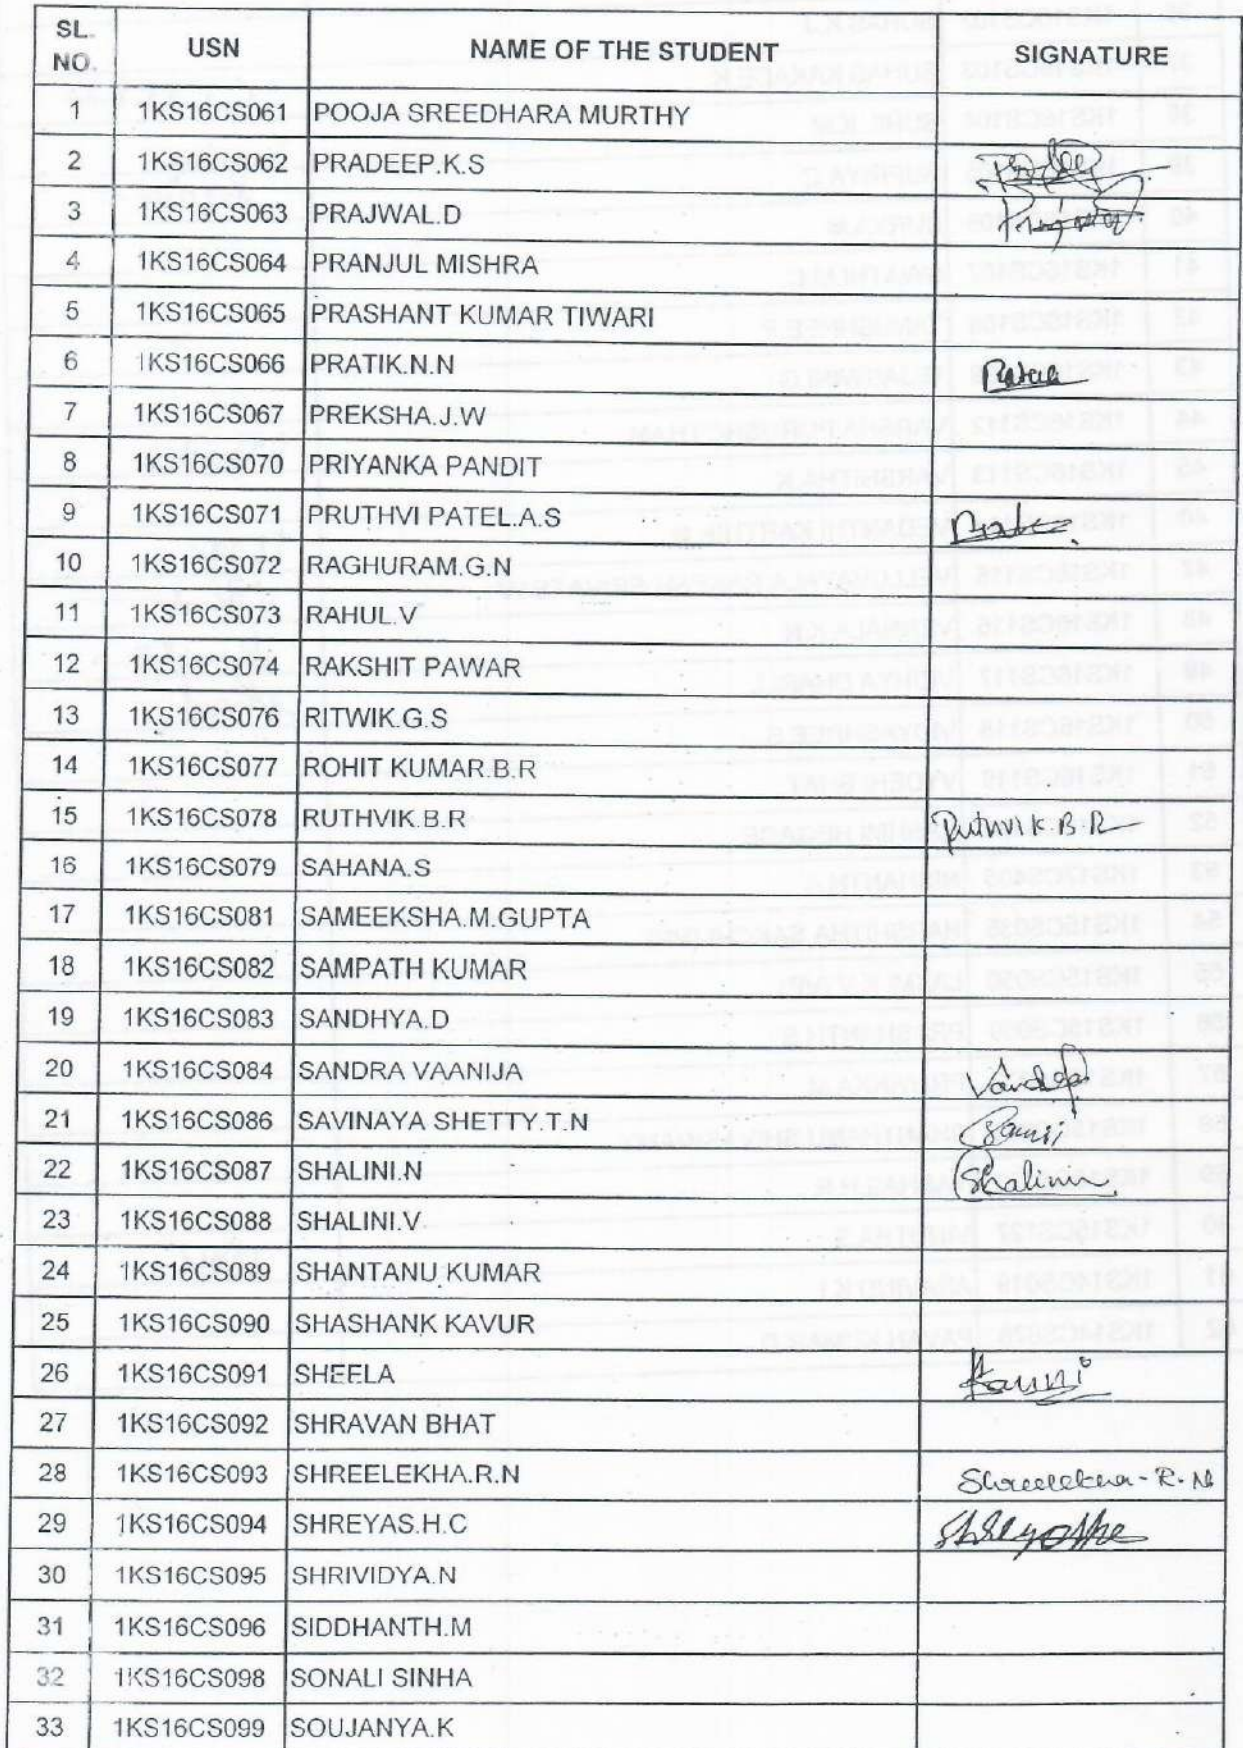 SL. NO. USN NAME OF THE STUDENT SIGNATURE
1 1KS16CS061 POOJA SREEDHARA MURTHY
2 1KS16CS062 PRADEEP.K.S
3 1KS16CS063 PRAJWAL.D
4 1KS16CS064 PRANJUL MISHRA
5 1KS16CS065 PRASHANT KUMAR TIWARI
6 1KS16CS066 PRATIK.N.N
7 1KS16CS067 PREKSHA.J.W
8 1KS16CS070 PRIYANKA PANDIT
9 1KS16CS071 PRUTHVI PATEL.A.S
10 1KS16CS072 RAGHURAM.G.N
11 1KS16CS073 RAHUL.V
12 1KS16CS074 RAKSHIT PAWAR
13 1KS16CS076 RITWIK.G.S
14 1KS16CS077 ROHIT KUMAR.B.R
15 1KS16CS078 RUTHVIK.B.R Ruthvik B.R
16 1KS16CS079 SAHANA.S
17 1KS16CS081 SAMEEKSHA.M.GUPTA
18 1KS16CS082 SAMPATH KUMAR
19 1KS16CS083 SANDHYA.D
20 1KS16CS084 SANDRA VAANIJA
21 1KS16CS086 SAVINAYA SHETTY.T.N
22 1KS16CS087 SHALINI.N Shalini
23 1KS16CS088 SHALINI.V
24 1KS16CS089 SHANTANU KUMAR
25 1KS16CS090 SHASHANK KAVUR
26 1KS16CS091 SHEELA
27 1KS16CS092 SHRAVAN BHAT
28 1KS16CS093 SHREELEKHA.R.N Shreelekha-R.N
29 1KS16CS094 SHREYAS.H.C
30 1KS16CS095 SHRIVIDYA.N
31 1KS16CS096 SIDDHANTH.M
32 1KS16CS098 SONALI SINHA
33 1KS16CS099 SOUJANYA.K